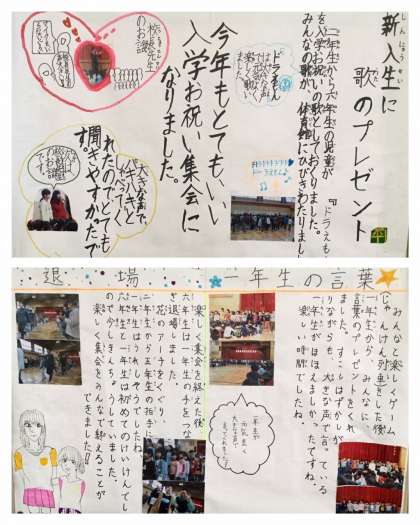 新入生に
しんにゅうせい
歌のプレゼント
二年生から六年生の児童が『ドラえもん』
を入学お祝いの歌としておくりました。
みんなの歌が、体育館にひびきわたりました
ドラえもん
今年もとてもいい
入学お祝い集会に
なりました。
校長先生
のお話
大きな声で、
ハキハキと
くれたのでとても
聞きやすかったで
す。
一年生の言葉
みんなと楽しくゲーム
じゃんけん列車をした後
一年生から、みんなに
言葉のプレゼントをくれ
ました。すこしはずかしが
りながらも、大きな声で言っている
一年生がほほえましかったですね。
楽しい時間でしたね。
一年生が
元気よく
大きな声で
言ってくれました！
退場
楽しい集会を終えた後
六年生は一年生の手をつな
ぎ退場しました。
花のアーチをくぐり
二年生から五年生の拍手に
一年生はうれしそうでしたね。
六年生と一年生は初めてのけいけんでし
楽しく集会をみんなで終えることが
できました！